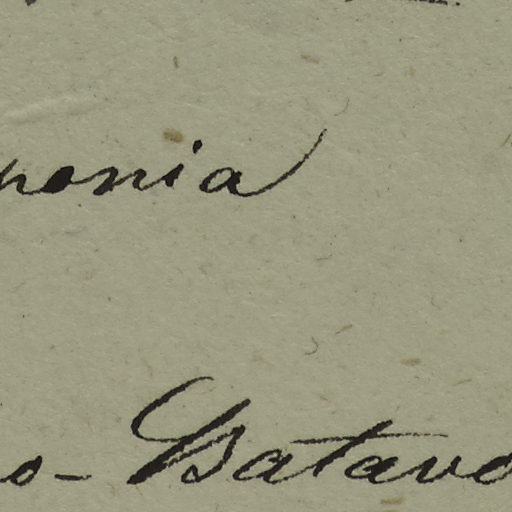 ponia
o-Batavo